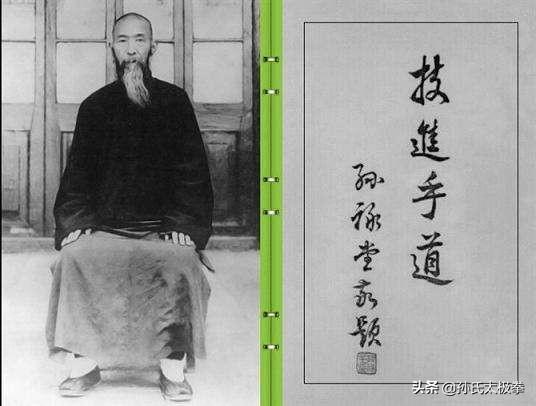 技進乎道
孫祿堂敬題
头条 @孙氏太极拳